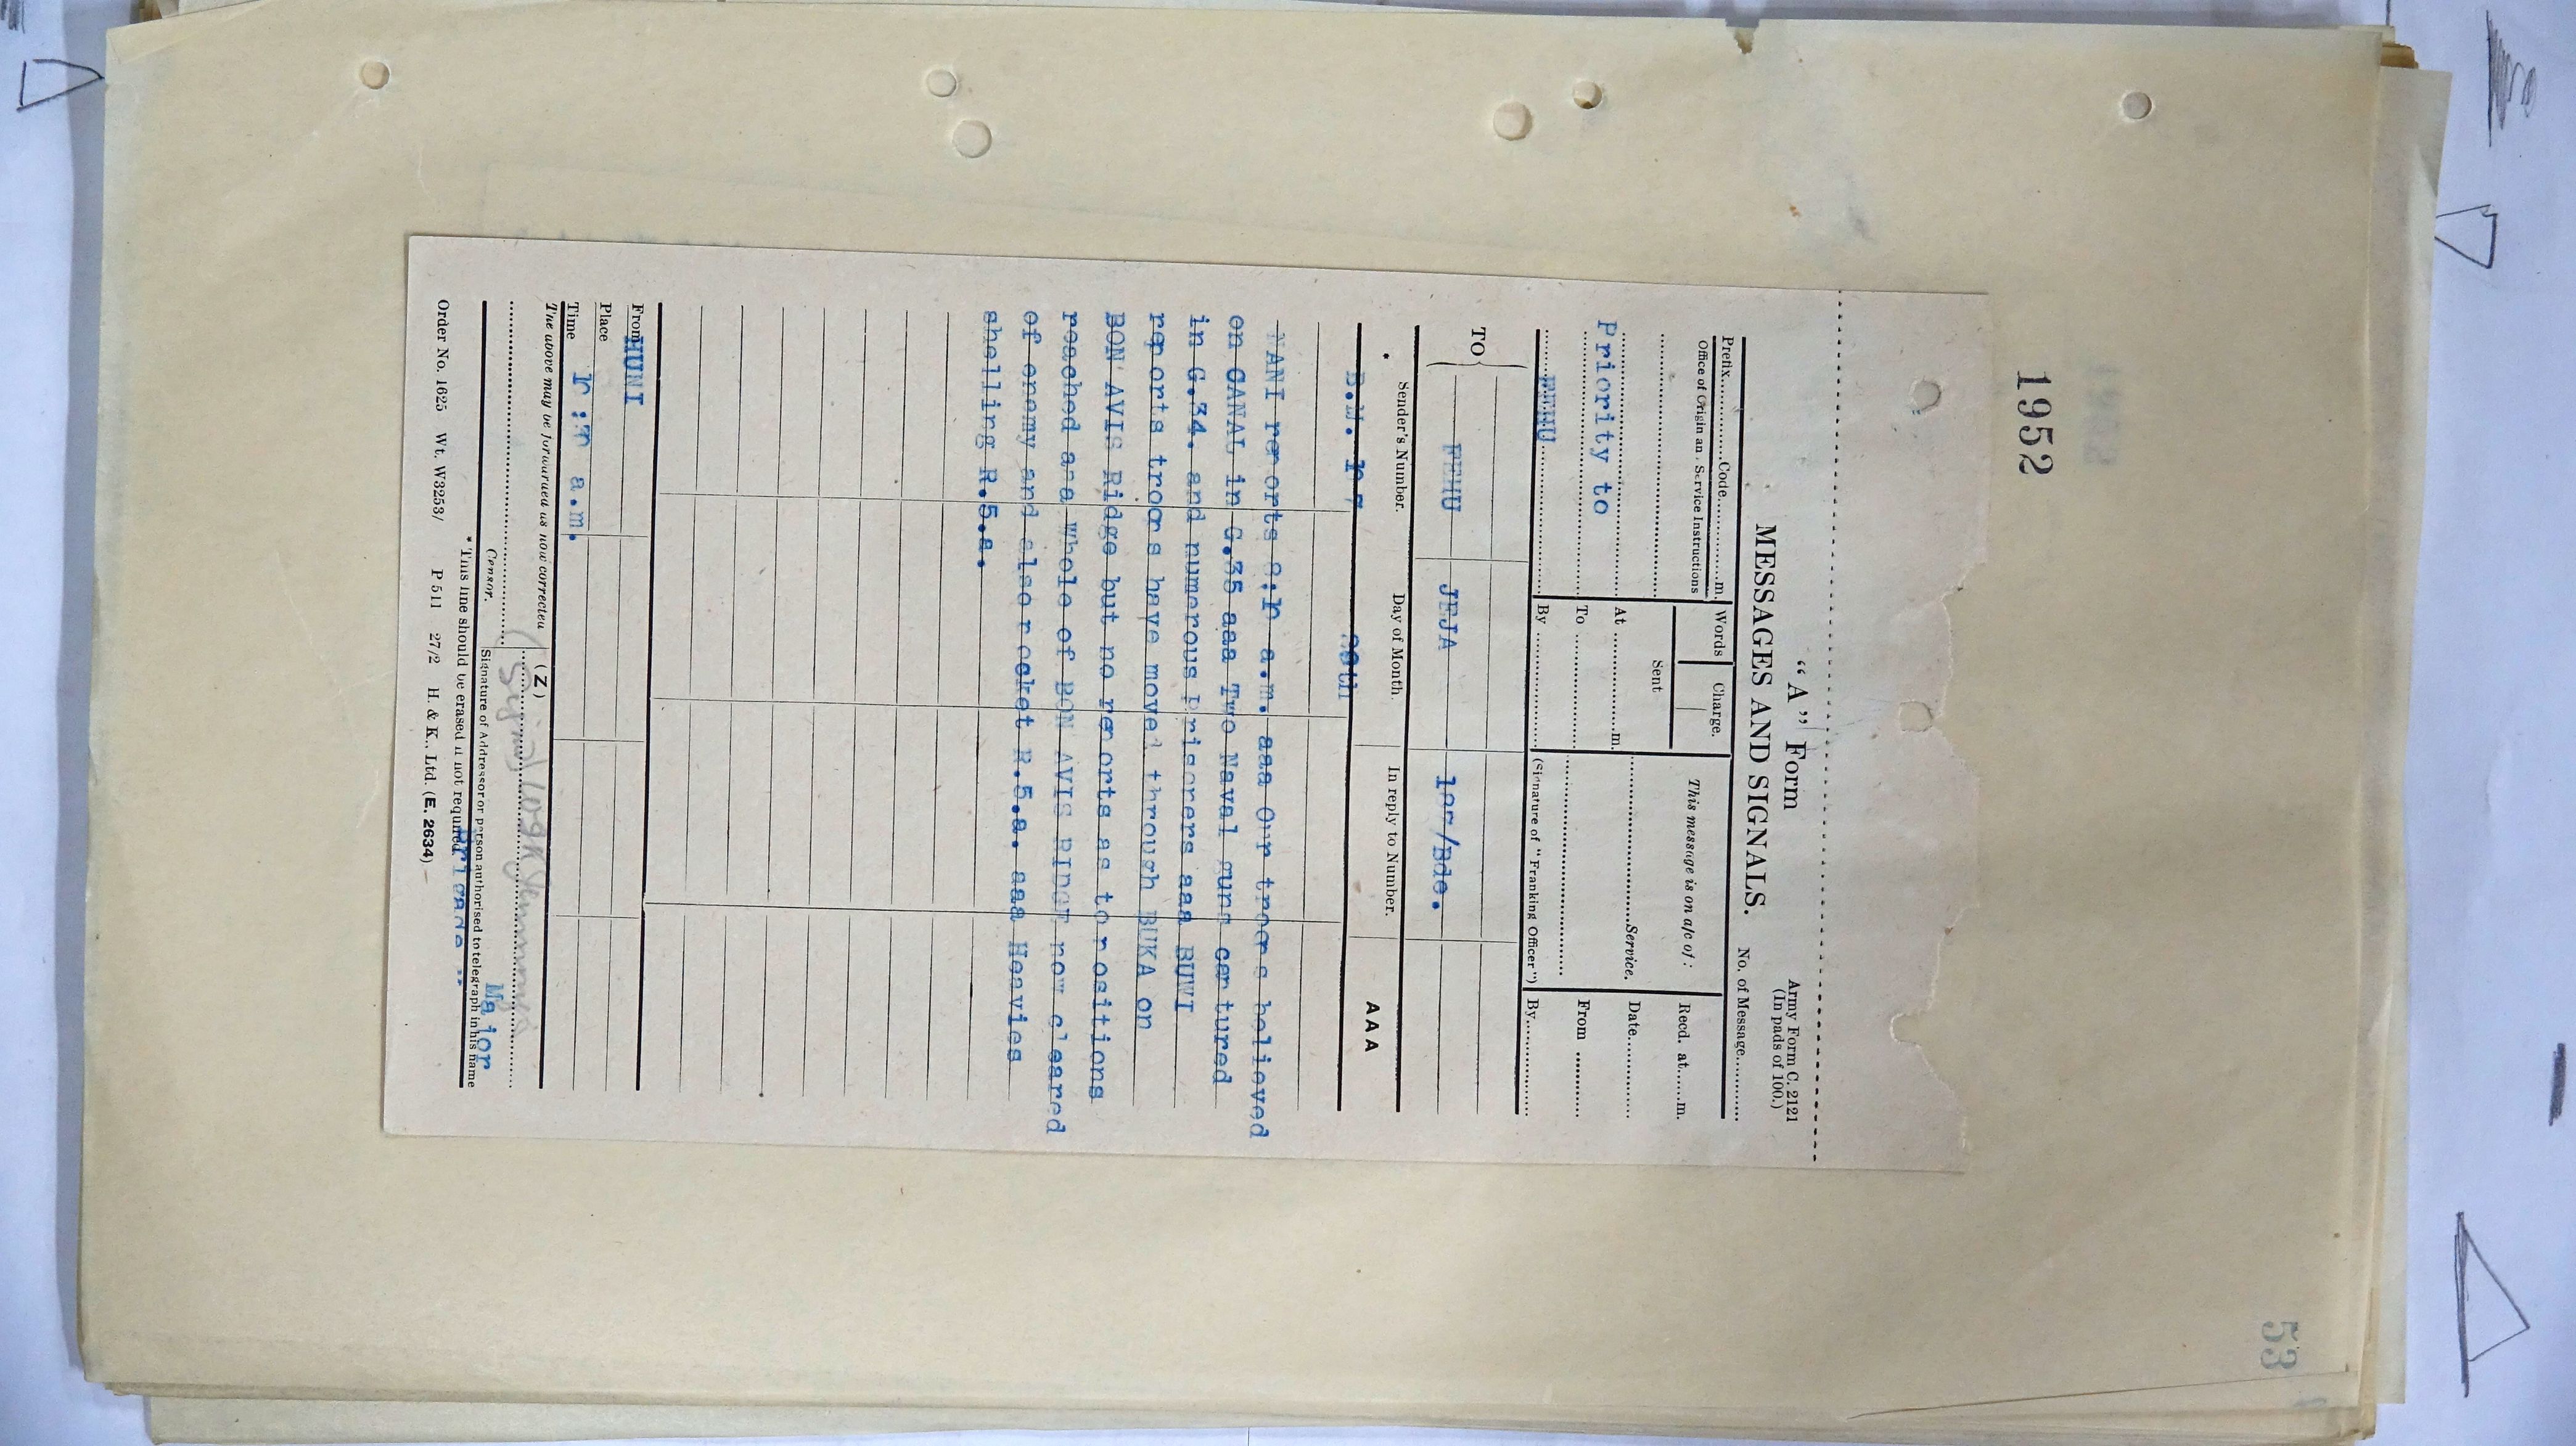 1952
"A" Form
MESSAGES AND SIGNALS.
Army Form C. 2121
(In pads of 100.)
No. of Message............
Prefix............Code............m.
Words
Charge.
This message is on a/c of :
Recd. at......m.
Office of Origin and Service Instructions
Sent
At ............m.
............Service.
Date............
Priority to
To ............
From ............
FEHU
By ............
(Signature of "Franking Officer")
By............
TO
FEHU
JEJA
Bde.
Sender's Number.
Day of Month.
In reply to Number.
AAA
B.M.
NANI reports a.m. aaa Our troops believed
on CANAL in G.35 aaa Two Naval guns captured
in G.34. and numerous Prisoners aaa BUWI
reports troops have moved through BUKA on
BON AVIS Ridge but no reports as to positions
reached aaa Whole of BON AVIS RIDGE now cleared
of enemy and also pocket R.5.a. aaa Heavies
shelling R.5.a.
From HUNI
Place
Time
a.m.
The above may be forwarded as now corrected
(Z)
(Signed)
Censor.
Signature of Addressor or person authorised to telegraph in his name
Major
* This line should be erased if not required.
Brigade
Order No. 1625 Wt. W3253/ P 511 27/2 H. & K., Ltd. (E. 2634)
53